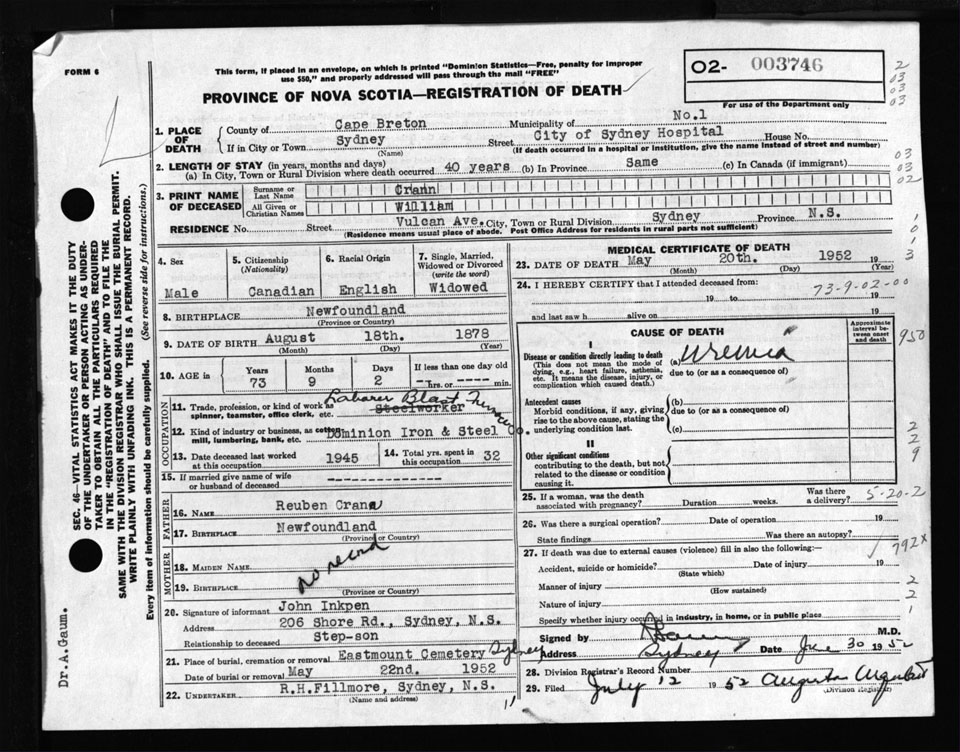 FORM 6
This form, if placed in an envelope, on which is printed "Dominion Statistics—Free, penalty for improper
use $50," and properly addressed will pass through the mail "FREE"
PROVINCE OF NOVA SCOTIA—REGISTRATION OF DEATH
O2- 003746
For use of the Department only
2
03
03
03
1. PLACE OF DEATH
County of Cape Breton Municipality of No.1
If in City or Town Sydney Street City of Sydney Hospital House No.
(Name) (If death occurred in a hospital or institution, give the name instead of street and number)
2. LENGTH OF STAY (in years, months and days)
(a) In City, Town or Rural Division where death occurred 40 years (b) In Province Same (c) In Canada (if immigrant)
03
03
02
3. PRINT NAME OF DECEASED
Surname or Last Name Crann
All Given or Christian Names William
RESIDENCE No. Street Vulcan Ave. City, Town or Rural Division Sydney Province N.S.
(Residence means usual place of abode. Post Office Address for residents in rural parts not sufficient)
4. Sex
Male
5. Citizenship
(Nationality)
Canadian
6. Racial Origin
English
7. Single, Married,
Widowed or Divorced
(write the word)
Widowed
8. BIRTHPLACE Newfoundland
(Province or Country)
9. DATE OF BIRTH August 18th. 1878
(Month) (Day) (Year)
10. AGE in
Years Months Days If less than one day old
73 9 2 hrs. or min.
OCCUPATION
Laborer Blast Furnace
11. Trade, profession, or kind of work as Steelworker
spinner, teamster, office clerk, etc.
12. Kind of industry or business, as cotton
mill, lumbering, bank, etc. Dominion Iron & Steel
13. Date deceased last worked
at this occupation 1945
14. Total yrs. spent in
this occupation 32
15. If married give name of wife
or husband of deceased
FATHER
16. NAME Reuben Crann
17. BIRTHPLACE Newfoundland
(Province or Country)
MOTHER
18. MAIDEN NAME
no record
19. BIRTHPLACE
(Province or Country)
20. Signature of informant John Inkpen
Address 206 Shore Rd., Sydney, N.S.
Relationship to deceased Step-son
21. Place of burial, cremation or removal Eastmount Cemetery Sydney
Date of burial or removal May 22nd. 1952
22. UNDERTAKER R.H.Fillmore, Sydney, N.S.
(Name and address)
MEDICAL CERTIFICATE OF DEATH
23. DATE OF DEATH May 20th. 1952 19
(Month) (Day) (Year)
24. I HEREBY CERTIFY that I attended deceased from:
73-9-02-00
19 to 19
and last saw h alive on 19
CAUSE OF DEATH
Approximate interval between onset and death
I
Disease or condition directly leading to death
(This does not mean the mode of
dying, e.g., heart failure, asthenia,
etc. It means the disease, injury, or
complication which caused death.)
(a) Uremia
due to (or as a consequence of)
Antecedent causes
Morbid conditions, if any, giving
rise to the above cause, stating the
underlying condition last.
(b)
due to (or as a consequence of)
(c)
II
Other significant conditions
contributing to the death, but not
related to the disease or condition
causing it.
950
2
2
9
25. If a woman, was the death
associated with pregnancy? Duration weeks. Was there a delivery?
5-20-2
26. Was there a surgical operation? Date of operation 19
State findings Was there an autopsy?
27. If death was due to external causes (violence) fill in also the following:
792X
Accident, suicide or homicide? Date of injury 19
(State which)
Manner of injury
(How sustained)
Nature of injury
Specify whether injury occurred in industry, in home, or in public place
2
2
1
Signed by M.D.
Address Sydney Date June 30 1952
28. Division Registrar's Record Number
29. Filed July 12 1952
(Division Registrar)
SEC. 46—VITAL STATISTICS ACT MAKES IT THE DUTY
OF THE UNDERTAKER OR PERSON ACTING AS UNDER-
TAKER TO OBTAIN ALL THE PARTICULARS REQUIRED
IN THE "REGISTRATION OF DEATH" AND TO FILE THE
SAME WITH THE DIVISION REGISTRAR WHO SHALL ISSUE THE BURIAL PERMIT.
WRITE PLAINLY WITH UNFADING INK. THIS IS A PERMANENT RECORD.
Every item of information should be carefully supplied. (See reverse side for instructions.)
Dr.A.Gaum.